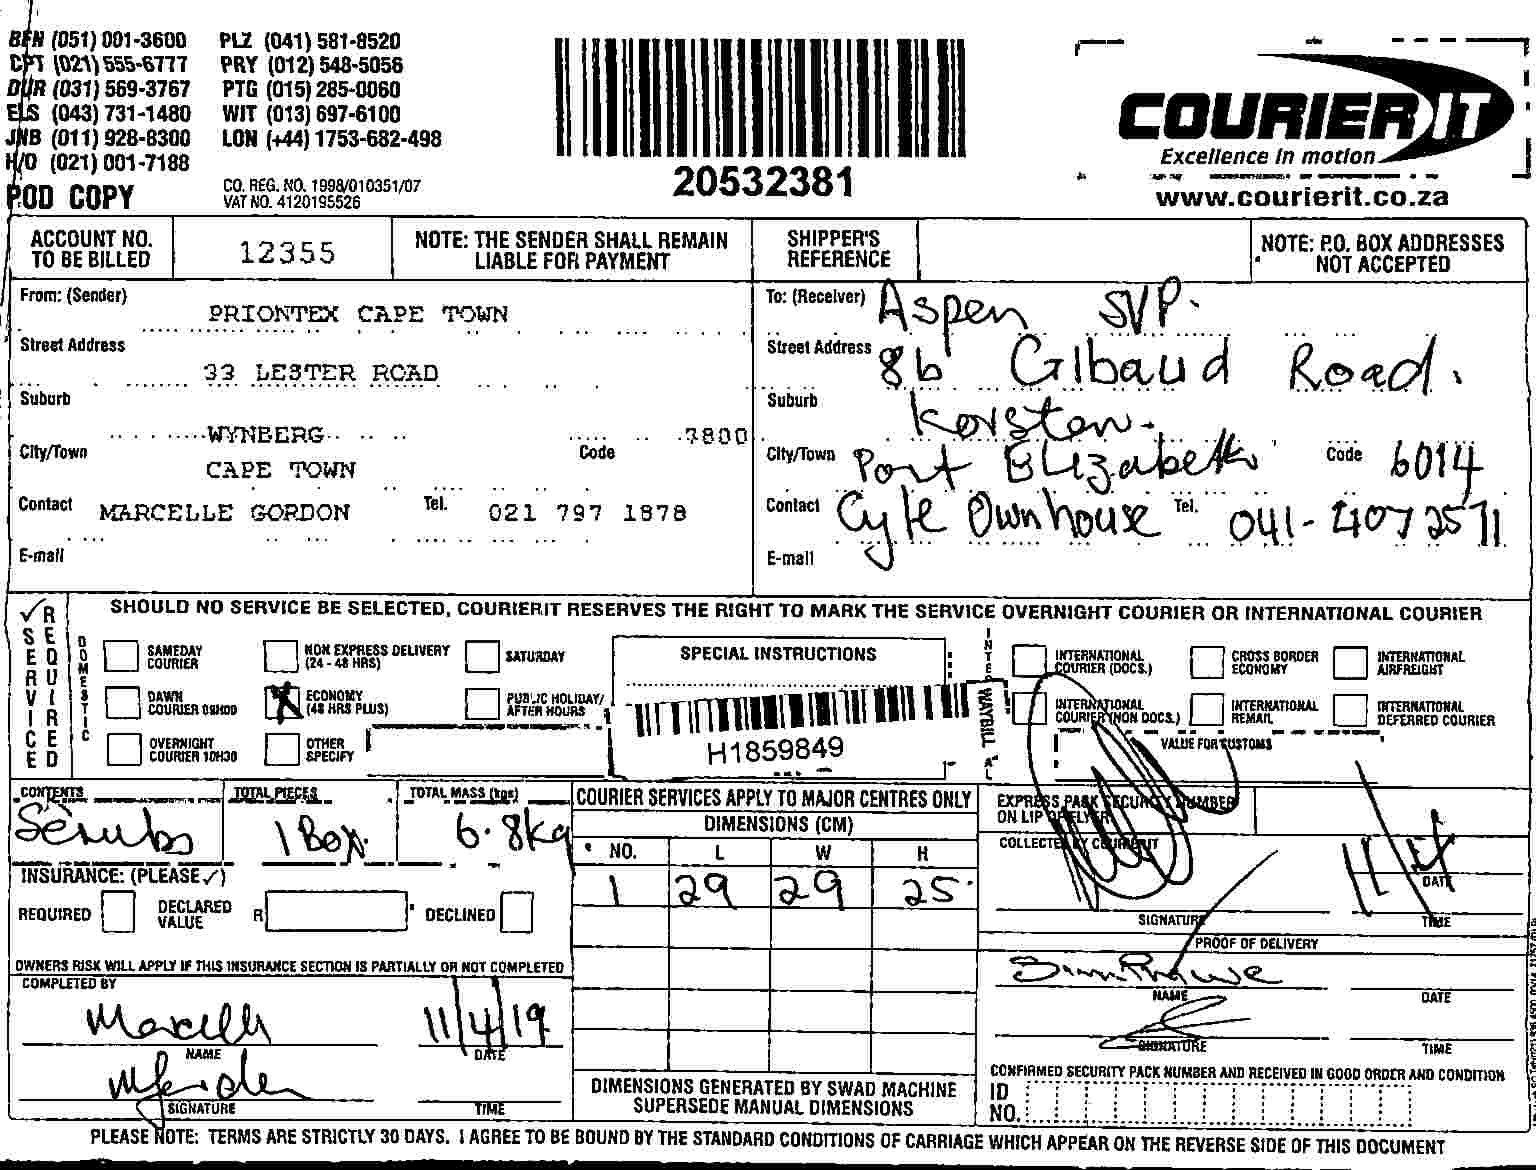 BFN (051) 001-3600 PLZ (041) 581-8520
CPT (021) 555-6777 PRY (012) 548-5056
DUR (031) 569-3767 PTG (015) 285-0060
ELS (043) 731-1480 WIT (013) 697-6100
JNB (011) 928-8300 LON (+44) 1753-682-498
H/O (021) 001-7188
POD COPY
CO. REG. NO. 1998/010351/07
VAT NO. 4120195526
20532381
COURIER IT
Excellence in motion
www.courierit.co.za
ACCOUNT NO. TO BE BILLED
12355
NOTE: THE SENDER SHALL REMAIN LIABLE FOR PAYMENT
SHIPPER'S REFERENCE
NOTE: P.O. BOX ADDRESSES NOT ACCEPTED
From: (Sender) PRIONTEX CAPE TOWN
Street Address 33 LESTER ROAD
Suburb WYNBERG
City/Town CAPE TOWN Code 7800
Contact MARCELLE GORDON Tel. 021 797 1878
E-mail
To: (Receiver) Aspen SVP.
Street Address 8b Gibaud Road.
Suburb Korsten.
City/Town Port Elizabeth Code 6014
Contact Cyle Ownhouse Tel. 041-4072571
E-mail
✓ SERVICE REQUIRED
SHOULD NO SERVICE BE SELECTED, COURIERIT RESERVES THE RIGHT TO MARK THE SERVICE OVERNIGHT COURIER OR INTERNATIONAL COURIER
DOMESTIC
SAMEDAY COURIER
NON EXPRESS DELIVERY (24 - 48 HRS)
SATURDAY
DAWN COURIER 09H00
X ECONOMY (48 HRS PLUS)
PUBLIC HOLIDAY/ AFTER HOURS
OVERNIGHT COURIER 10H30
OTHER SPECIFY
SPECIAL INSTRUCTIONS
H1859849
WAYBILL
INTERNATIONAL COURIER (DOCS.)
CROSS BORDER ECONOMY
INTERNATIONAL AIRFREIGHT
INTERNATIONAL COURIER (NON DOCS.)
INTERNATIONAL REMAIL
INTERNATIONAL DEFERRED COURIER
VALUE FOR CUSTOMS
CONTENTS
Scrubs
TOTAL PIECES
1 Box.
TOTAL MASS (kgs)
6.8kg
COURIER SERVICES APPLY TO MAJOR CENTRES ONLY
DIMENSIONS (CM)
NO. L W H
1 29 29 25
EXPRESS PACK SECURITY NUMBER ON LIP OF FLYER
COLLECTED BY COURIERIT
SIGNATURE
DATE
TIME
INSURANCE: (PLEASE ✓)
REQUIRED
DECLARED VALUE R
DECLINED
OWNERS RISK WILL APPLY IF THIS INSURANCE SECTION IS PARTIALLY OR NOT COMPLETED
COMPLETED BY
Marcelle 11/4/19
NAME DATE
SIGNATURE TIME
DIMENSIONS GENERATED BY SWAD MACHINE SUPERSEDE MANUAL DIMENSIONS
PROOF OF DELIVERY
NAME DATE
SIGNATURE TIME
CONFIRMED SECURITY PACK NUMBER AND RECEIVED IN GOOD ORDER AND CONDITION
ID NO.
PLEASE NOTE: TERMS ARE STRICTLY 30 DAYS. I AGREE TO BE BOUND BY THE STANDARD CONDITIONS OF CARRIAGE WHICH APPEAR ON THE REVERSE SIDE OF THIS DOCUMENT